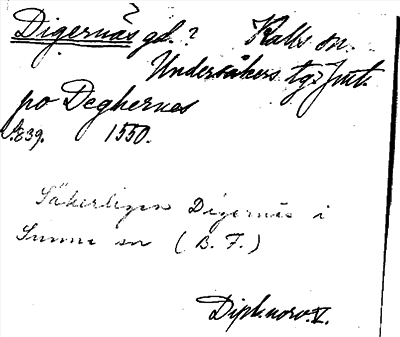 Digernäs gd. ? Kalls sn.
Undersåkers tg. Jmt.
po Deghernes
s. 839. 1550.
Säkerligen Digernäs i
Sunne sn (B. F.)
Dipl. norv. V.